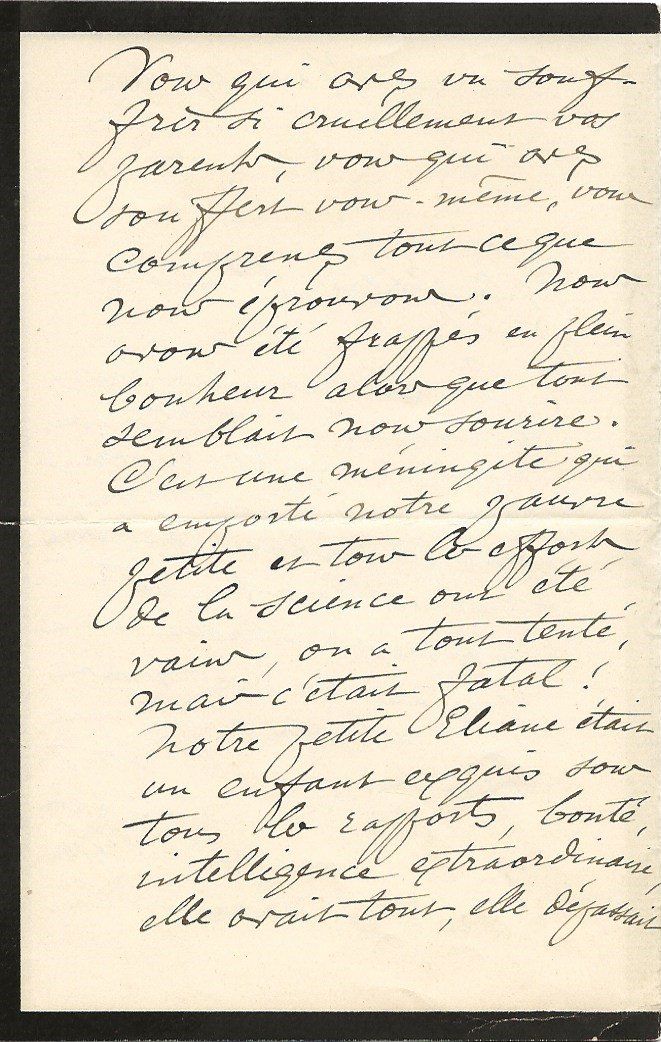 Vous qui avez vu souf-
frir si cruellement vos
parents, vous qui avez
souffert vous-même, vous
comprenez tout ce que
nous éprouvons. Nous
avons été frappés en plein
bonheur alors que tout
semblait nous sourire.
C'est une méningite qui
a emporté notre pauvre
petite et tous les efforts
de la science ont été
vains, on a tout tenté,
mais c'était fatal !
Notre petite Eliane était
un enfant exquis sous
tous les rapports, bonté,
intelligence extraordinaire,
elle avait tout, elle dépassait